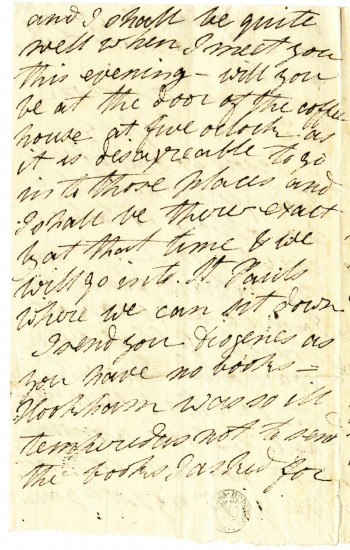 and I shall be quite
well when I meet you
this evening - will you
be at the door of the coffee
house at five oclock - as
it is disagreeable to go
into those places and
I shall be there exact
ly at that time & we
will go into St Pauls
where we can sit down
I send you Diogenes as
you have no books =
Hookham was so ill
tempered as not to send
the books I asked for